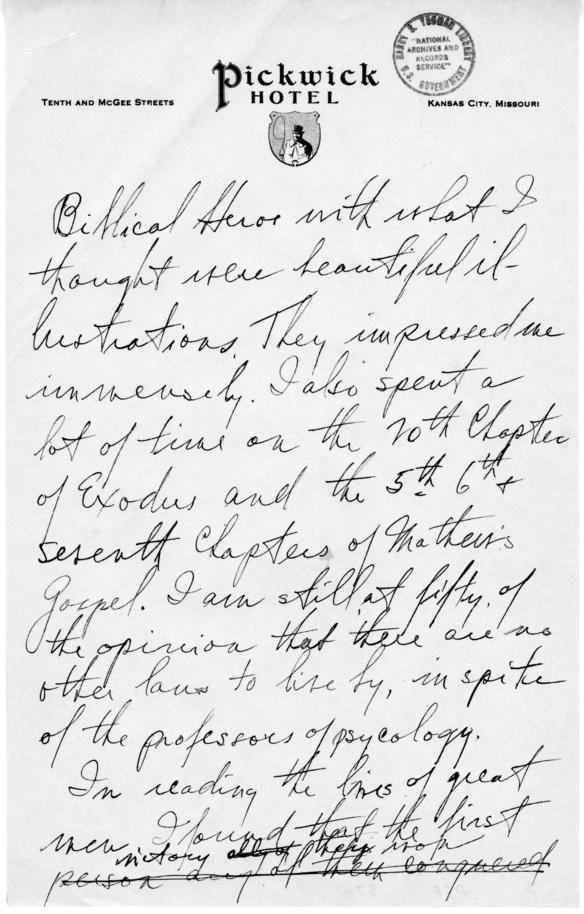 HARRY S. TRUMAN LIBRARY
"NATIONAL
ARCHIVES AND
RECORDS
SERVICE"
U.S. GOVERNMENT
Pickwick
HOTEL
TENTH AND MCGEE STREETS
KANSAS CITY, MISSOURI
Biblical Heroe with what I
thought were beautiful il-
lustrations. They impressed me
immensely. I also spent a
lot of time on the 20th Chapter
of Exodus and the 5th 6th +
seventh Chapters of Mathew's
Gospel. I am still, at fifty, of
the opinion that there are no
other laws to live by, in spite
of the professors of psycology.
In reading the lives of great
men, I found that the first
victory all of them won
person any of them conquered